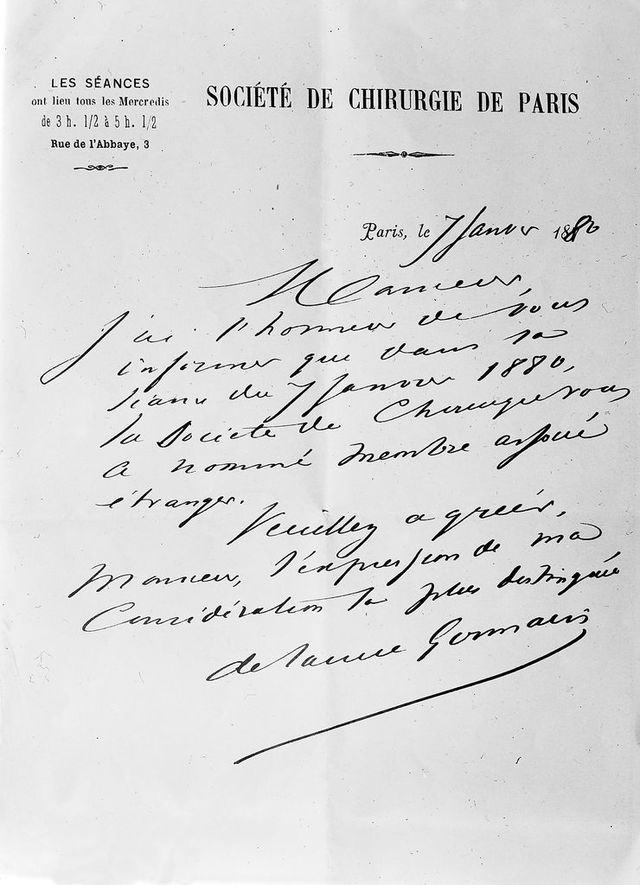 LES SÉANCES
ont lieu tous les Mercredis
de 3 h. 1/2 à 5 h. 1/2
Rue de l'Abbaye, 3
SOCIÉTÉ DE CHIRURGIE DE PARIS
Paris, le 7 Janvier 1880
Monsieur,
J'ai l'honneur de vous
informer que dans sa
séance du 7 Janvier 1880,
la Société de Chirurgie vous
a nommé membre associé
étranger.
Veuillez agréer,
Monsieur, l'expression de ma
Considération la plus distinguée
de